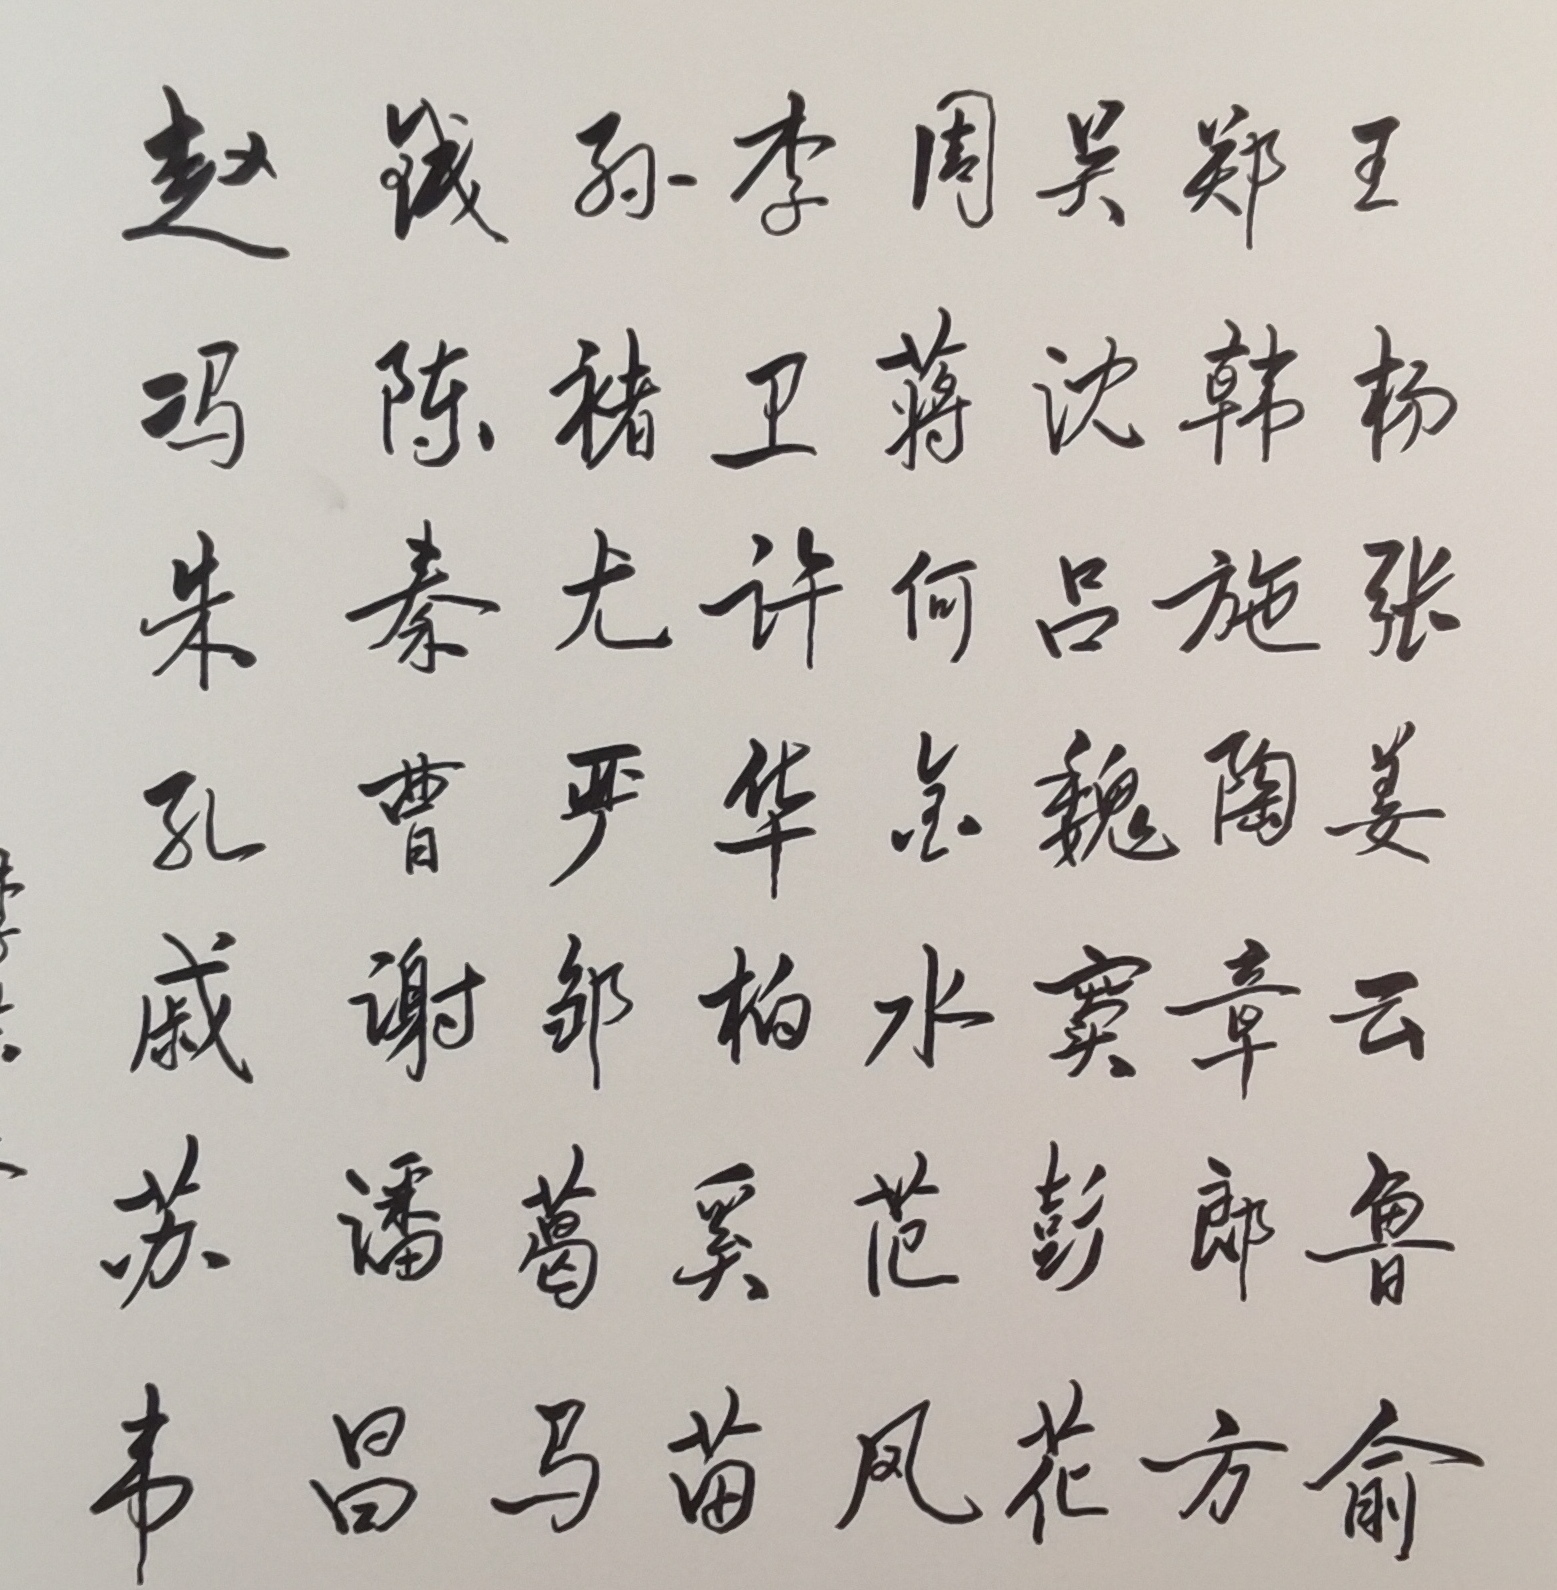 赵 钱 孙 李 周 吴 郑 王
冯 陈 褚 卫 蒋 沈 韩 杨
朱 秦 尤 许 何 吕 施 张
孔 曹 严 华 金 魏 陶 姜
戚 谢 邹 柏 水 窦 章 云
苏 潘 葛 奚 范 彭 郎 鲁
韦 昌 马 苗 凤 花 方 俞